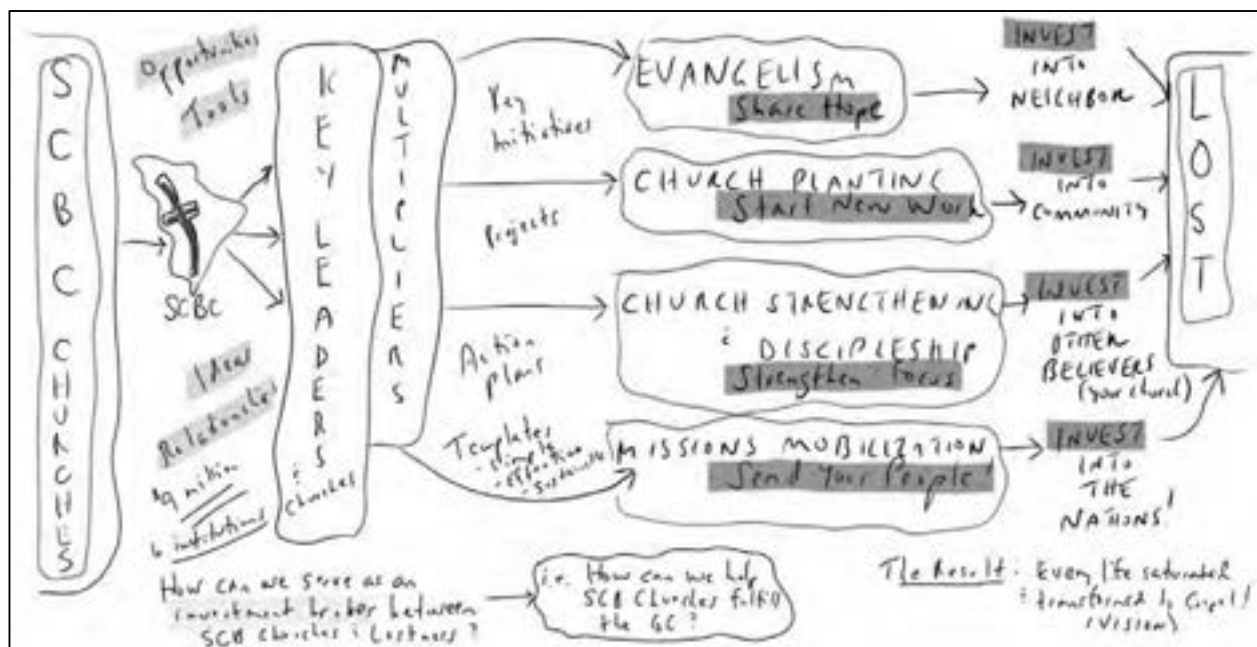 SCBC CHURCHES
Opportunities
Tools
SCBC
Ideas
Relationships
$9 million
6 institutions
KEY LEADERS
& churches
MULTIPLIERS
Key
Initiatives
Projects
Action
plans
Templates
- simple
- effective
- sustainable
EVANGELISM
Share Hope
CHURCH PLANTING
Start New Work
CHURCH STRENGTHENING
& DISCIPLESHIP
Strengthen Focus
MISSIONS MOBILIZATION
Send Your People!
INVEST
INTO
NEIGHBOR
INVEST
INTO
COMMUNITY
INVEST
INTO
OTHER
BELIEVERS
(your church)
INVEST
INTO
THE
NATIONS!
LOST
How can we serve as an
investment broker between
SCB Churches & Lostness?
i.e. How can we help
SCB Churches fulfill
the GC?
The Result: Every life saturated
& transformed by Gospel!
(Vision)